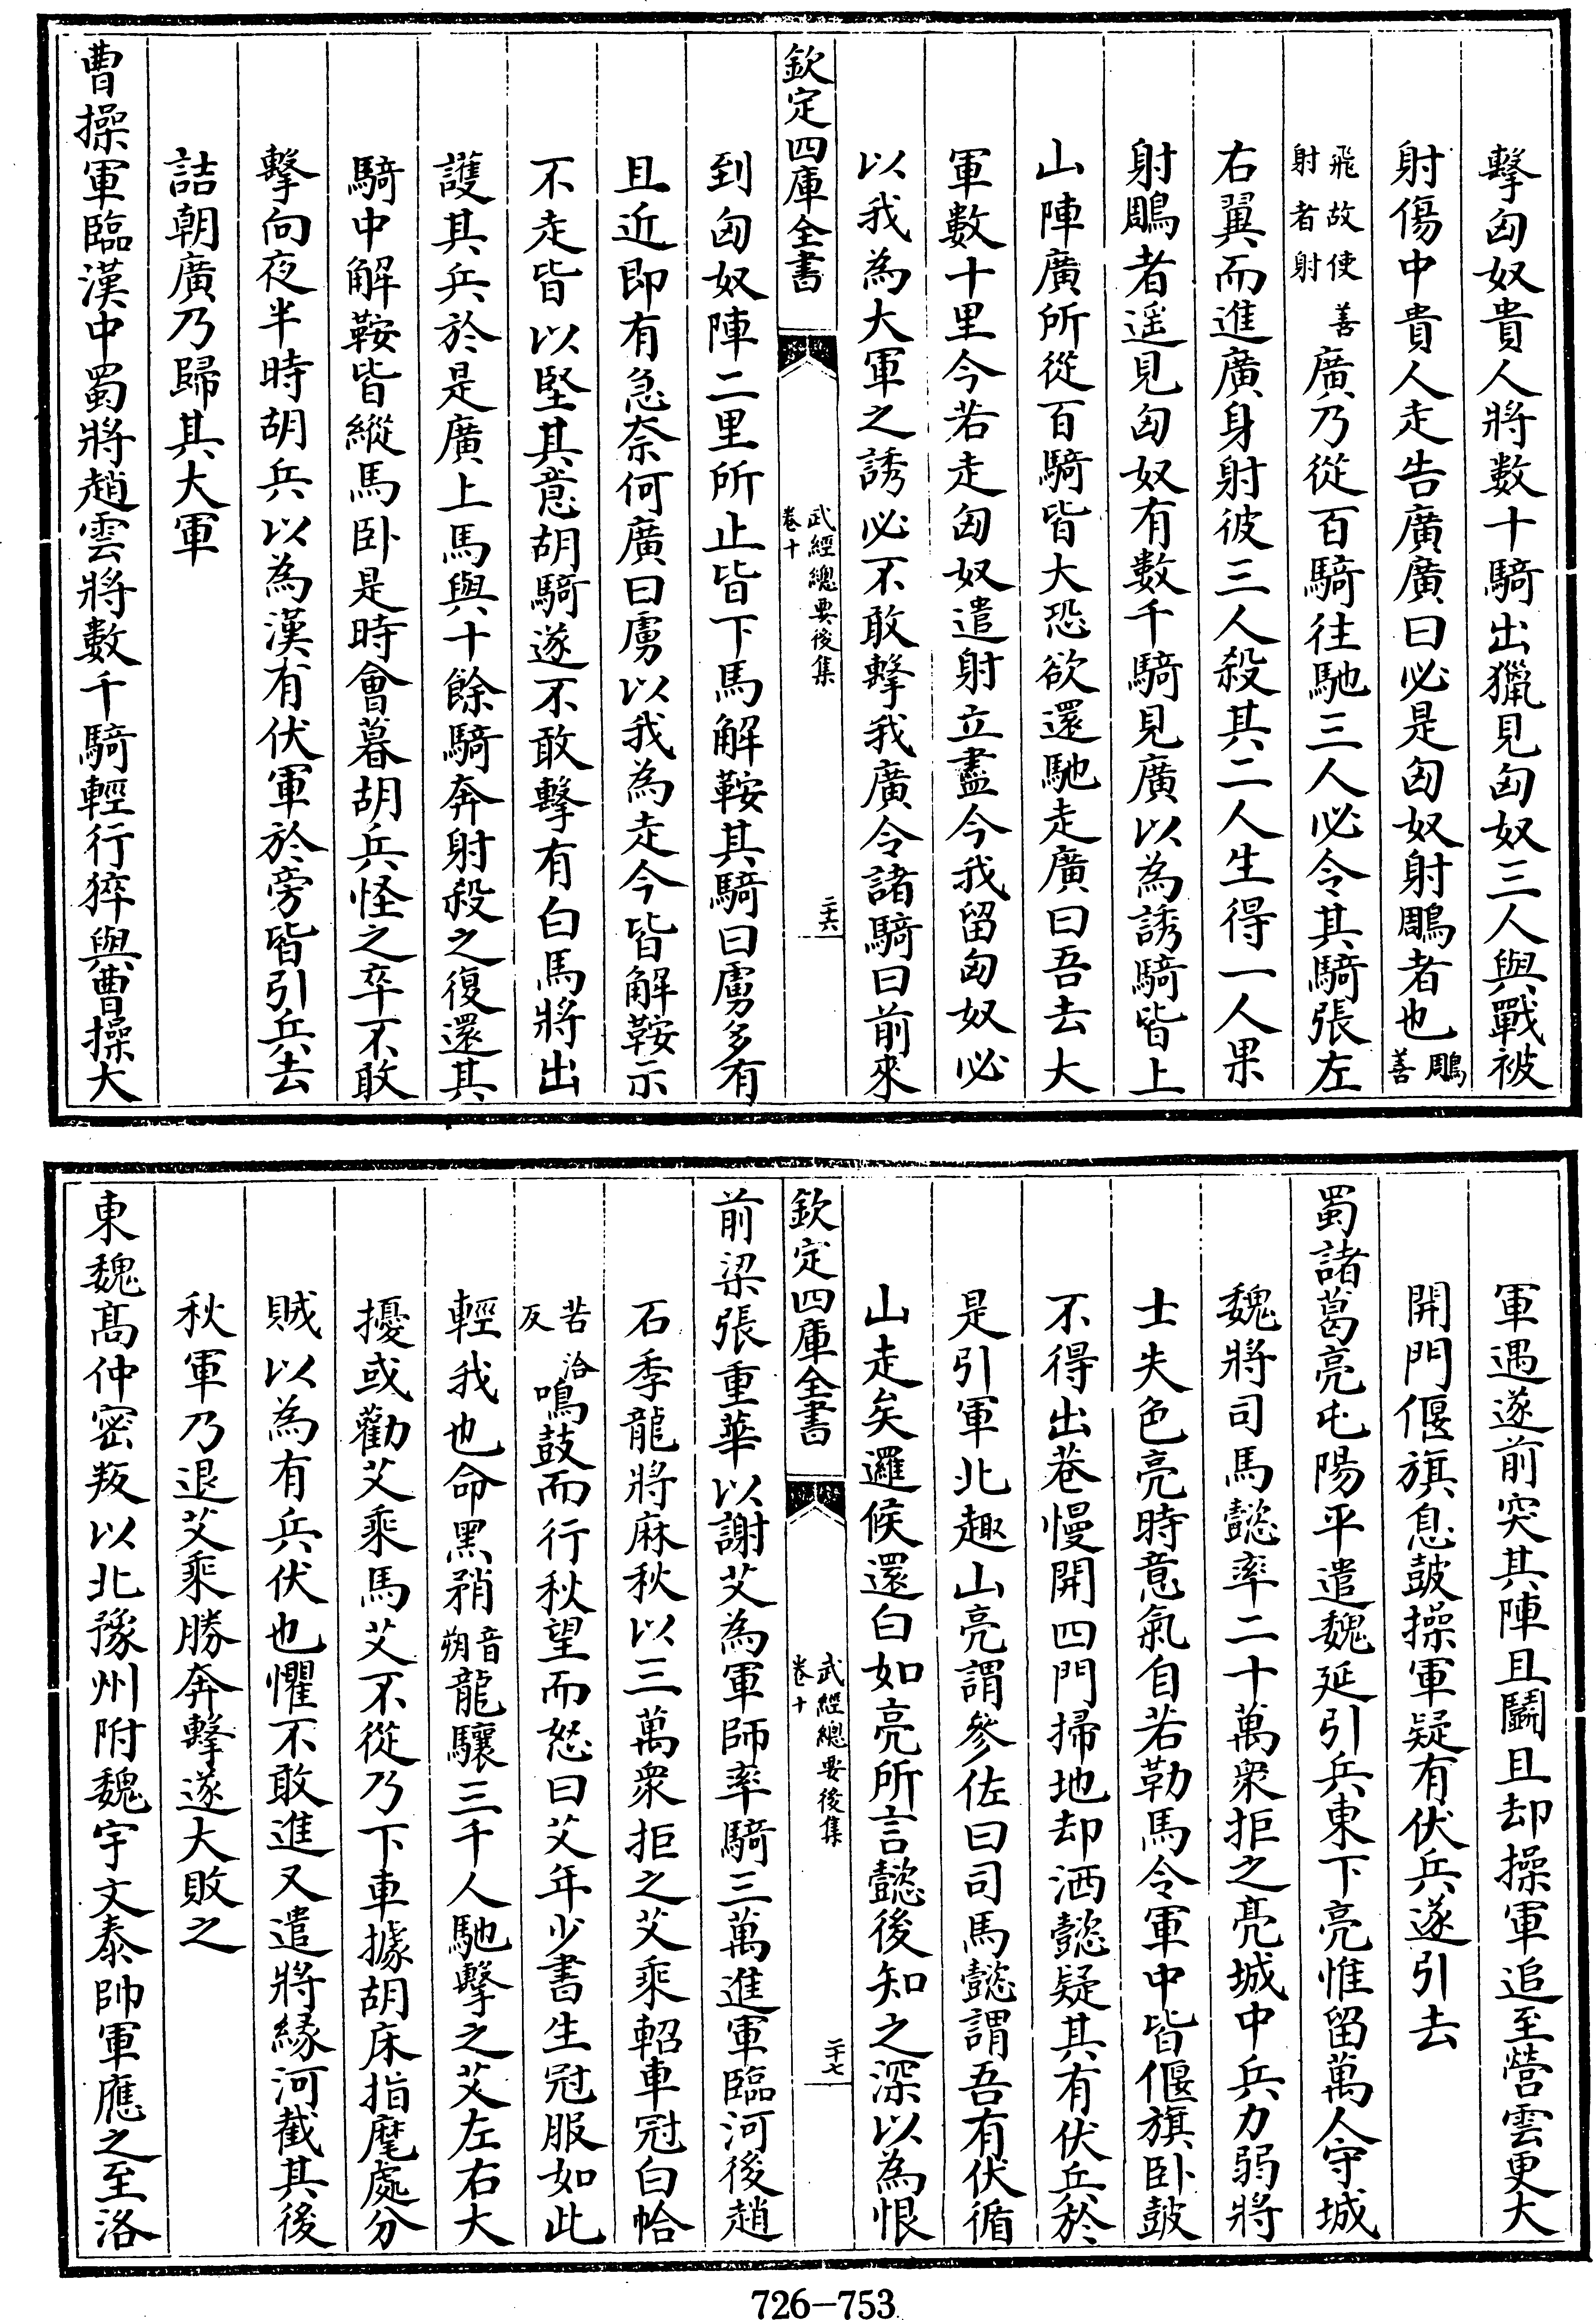 擊匈奴貴人將數十騎出獵見匈奴三人與戰被
射傷中貴人走告廣廣曰必是匈奴射鵰者也鵰善
飛故使善射者射廣乃從百騎往馳三人必令其騎張左
右翼而進廣身射彼三人殺其二人生得一人果
射鵰者遥見匈奴有數千騎見廣以為誘騎皆上
山陣廣所從百騎皆大恐欲還馳走廣曰吾去大
軍數十里今若走匈奴遣射立盡今我留匈奴必
以我為大軍之誘必不敢擊我廣令諸騎曰前來
欽定四庫全書
武經總要後集
卷十
二十六
到匈奴陣二里所止皆下馬解鞍其騎曰虜多有
且近即有急奈何廣曰虜以我為走今皆解鞍示
不走皆以堅其意胡騎遂不敢擊有白馬將出
護其兵於是廣上馬與十餘騎奔射殺之復還其
騎中解鞍皆縱馬卧是時會暮胡兵怪之卒不敢
擊向夜半時胡兵以為漢有伏軍於旁皆引兵去
詰朝廣乃歸其大軍
曹操軍臨漢中蜀將趙雲將數千騎輕行猝與曹操大
軍遇遂前突其陣且鬭且却操軍追至營雲更大
開門偃旗息鼓操軍疑有伏兵遂引去
蜀諸葛亮屯陽平遣魏延引兵東下亮惟留萬人守城
魏將司馬懿率二十萬衆拒之亮城中兵力弱將
士失色亮時意氣自若勒馬令軍中皆偃旗卧鼓
不得出巷慢開四門掃地却洒懿疑其有伏兵於
是引軍北趣山亮謂參佐曰司馬懿謂吾有伏循
山走矣邏候還白如亮所言懿後知之深以為恨
欽定四庫全書
武經總要後集
卷十
二十七
前梁張重華以謝艾為軍師率騎三萬進軍臨河後趙
石季龍將麻秋以三萬衆拒之艾乘軺車冠白帢
苦洽反鳴鼓而行秋望而怒曰艾年少書生冠服如此
輕我也命黑矟音朔龍驤三千人馳擊之艾左右大
擾或勸艾乘馬艾不從乃下車據胡床指麾處分
賊以為有兵伏也懼不敢進又遣將緣河截其後
秋軍乃退艾乘勝奔擊遂大敗之
東魏髙仲密叛以北豫州附魏宇文泰帥軍應之至洛
726—753